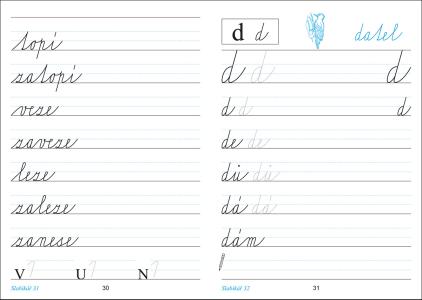 topí
zatopí
veze
zaveze
leze
zaleze
zanese
V U N
Slabikář 31 30
d d datel
d d d
d d d
de de
dů dů
dá dá
dám
Slabikář 32 31